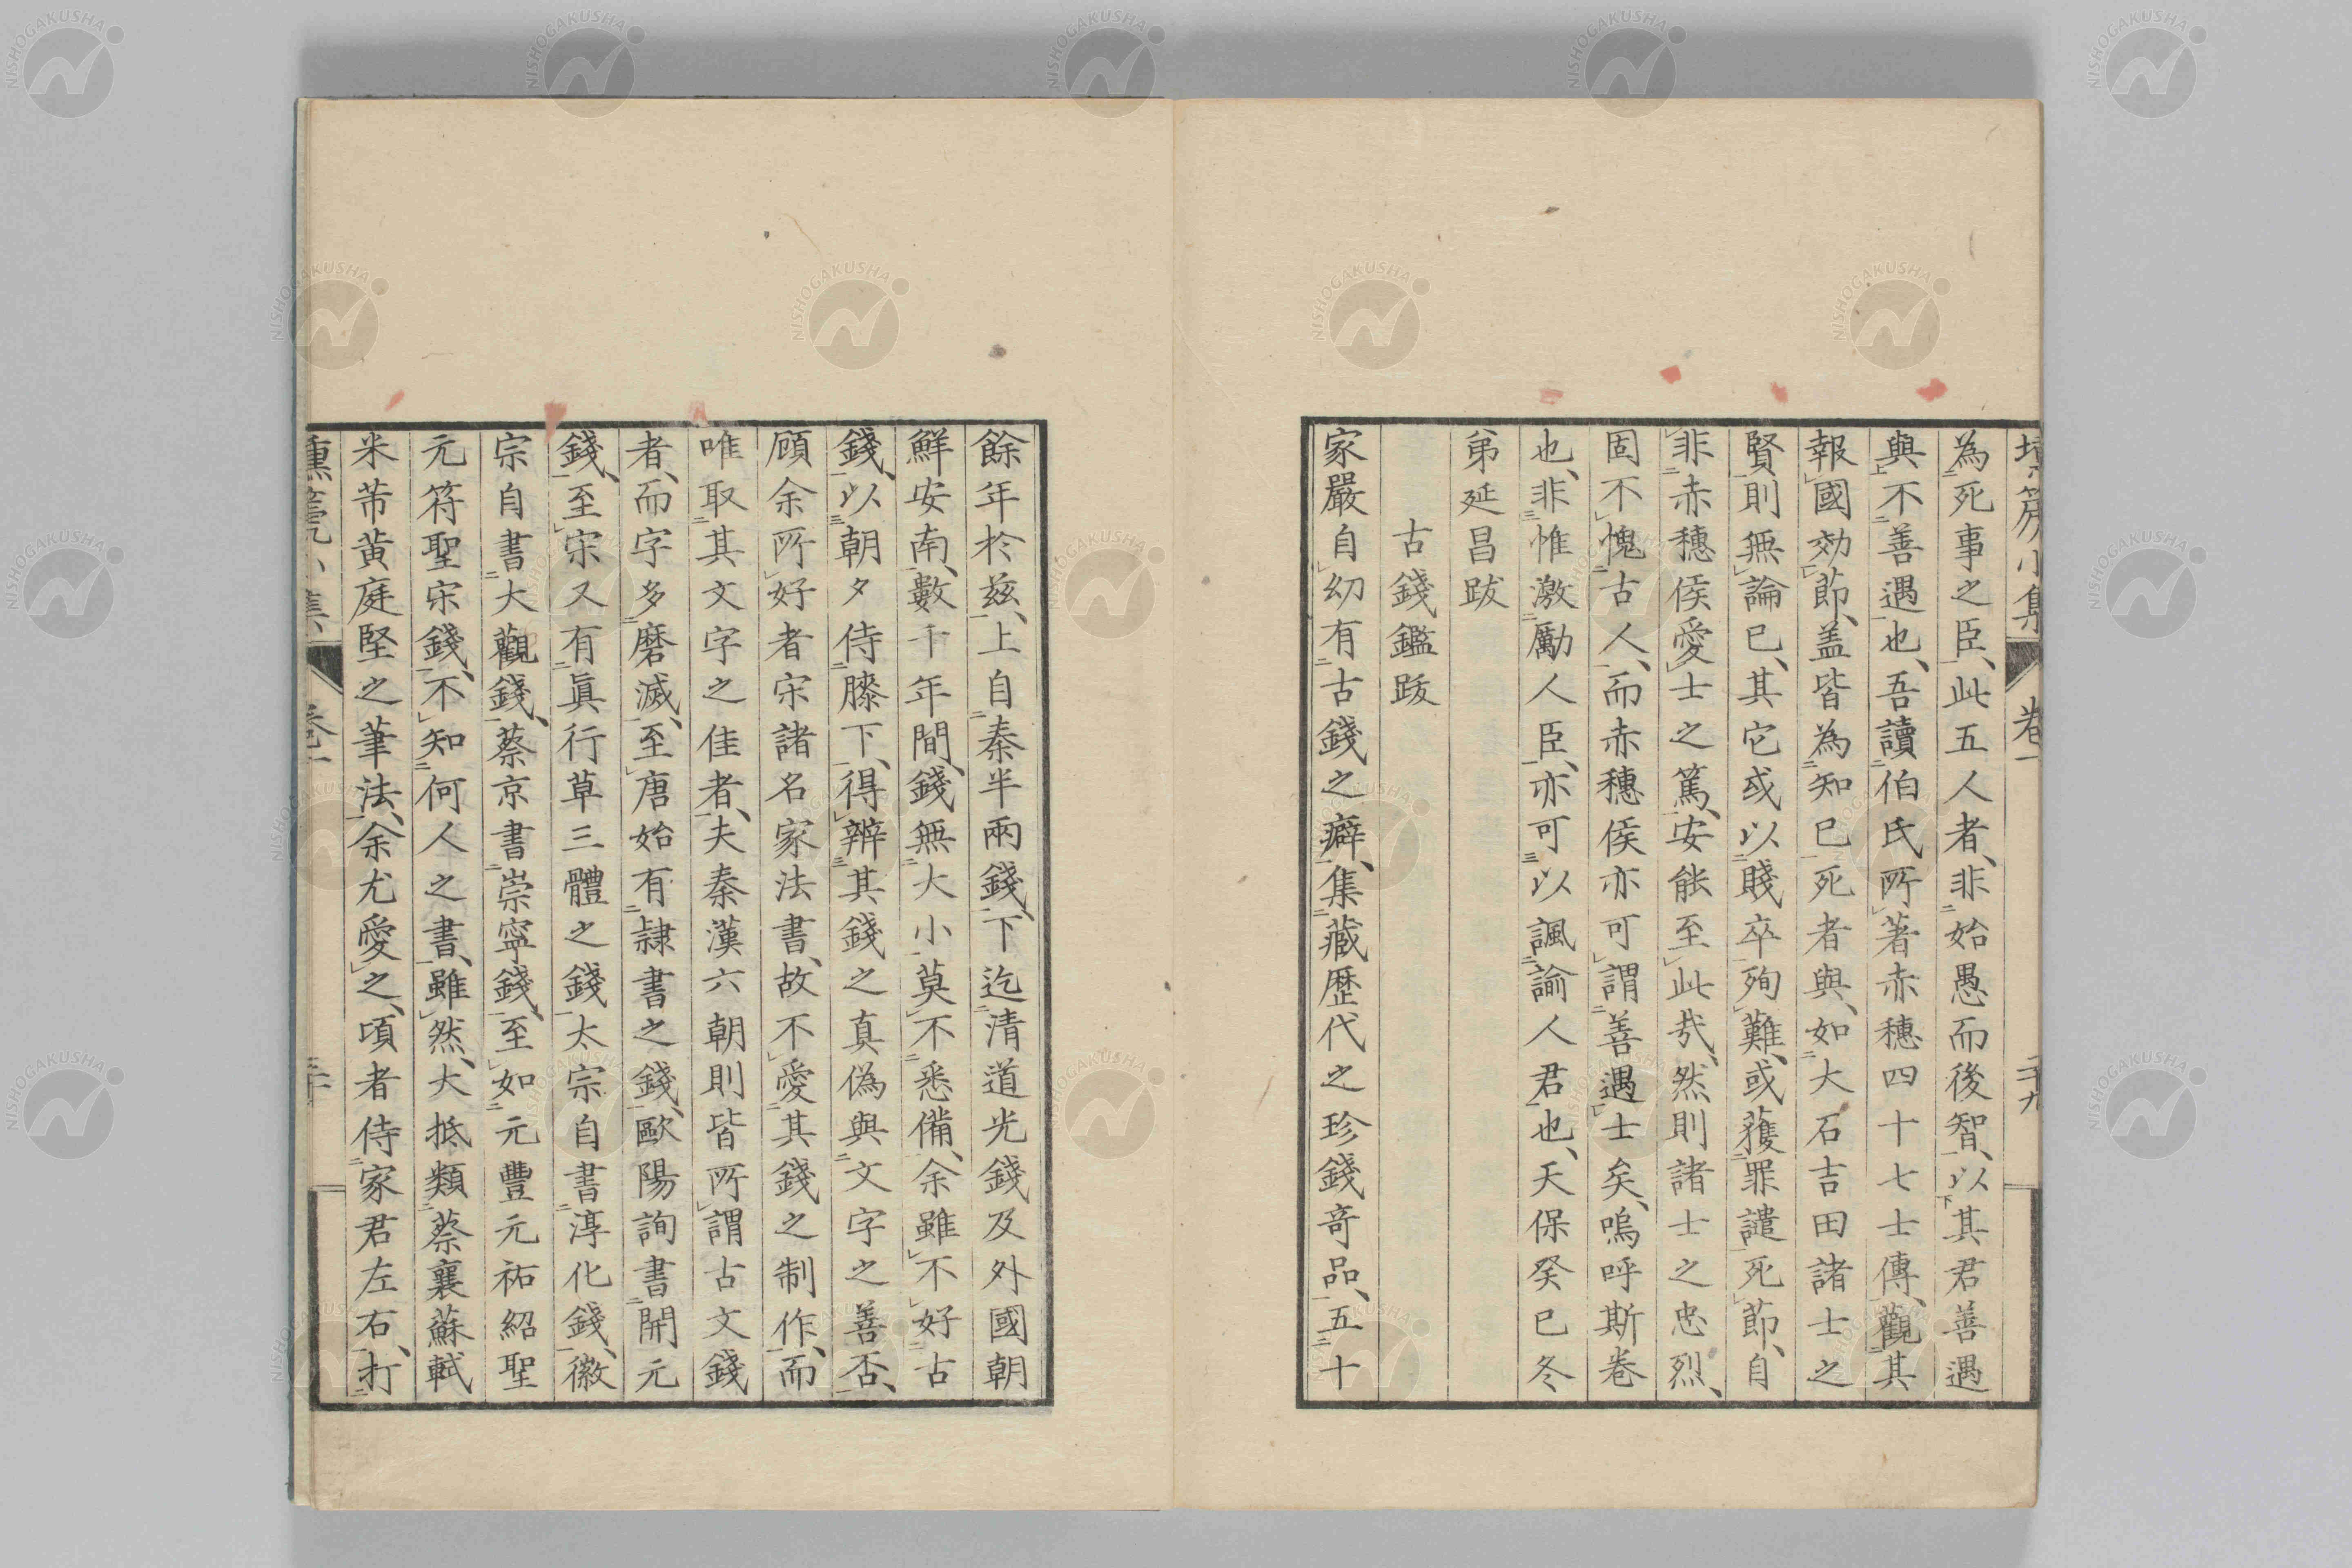 為死事之臣、此五人者、非始愚而後智、以其君善遇
與不善遇也、吾讀伯氏所著赤穗四十七士傳、觀其
報國効節、盖皆為知已死者與、如大石吉田諸士之
賢則無論已、其它或以賤卒殉難、或獲罪譴死節、自
非赤穗侯愛士之篤、安能至此哉、然則諸士之忠烈、
固不愧古人、而赤穗侯亦可謂善遇士矣、嗚呼斯巻
也、非惟激勵人臣、亦可以諷諭人君也、天保癸巳冬
弟延昌跋
古錢鑑跋
家嚴自幼有古錢之癖、集藏歷代之珍錢竒品、五十
卷一
二十九
餘年於兹、上自秦半兩錢、下迄清道光錢及外國朝
鮮安南、數千年間、錢無大小、莫不悉備、余雖不好古
錢、以朝夕侍膝下、得辨其錢之真偽與文字之善否、
顧余所好者宋諸名家法書、故不愛其錢之制作、而
唯取其文字之佳者、夫秦漢六朝則皆所謂古文錢
者、而字多磨滅、至唐始有隷書之錢、歐陽詢書開元
錢、至宋又有眞行草三體之錢、太宗自書淳化錢、徽
宗自書大觀錢、蔡京書崇寧錢、至如元豐元祐紹聖
元符聖宋錢、不知何人之書、雖然、大抵類蔡襄蘇軾
米芾黄庭堅之筆法、余尤愛之、項者侍家君左右、打
NISHOGAKUSHA